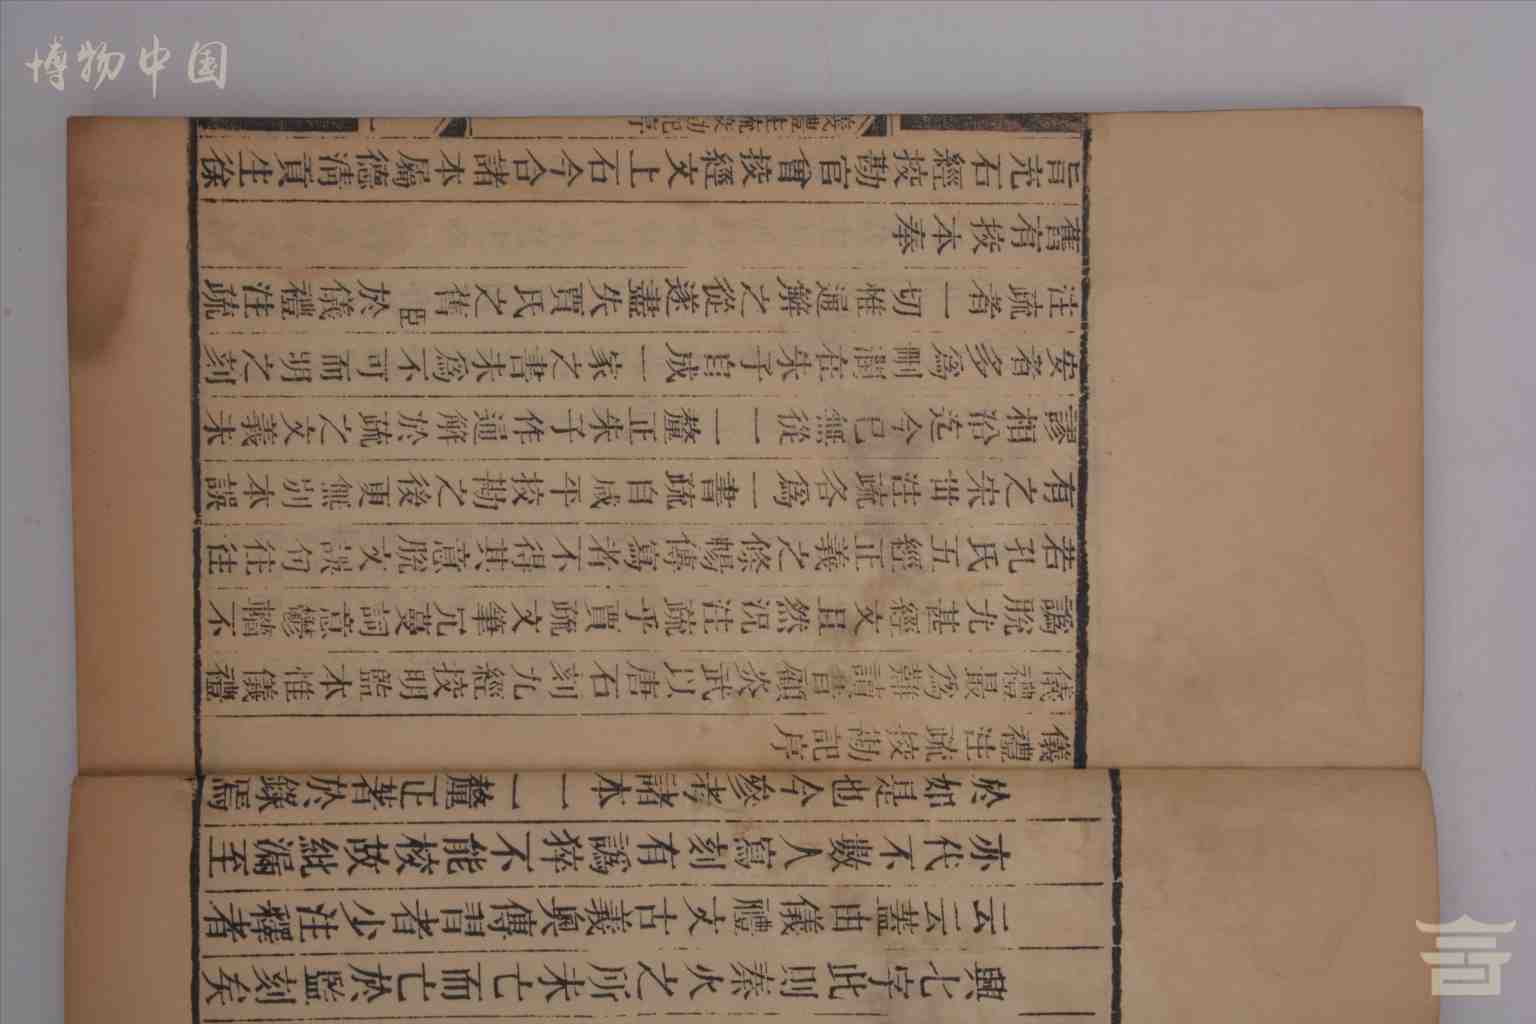 博物中国
興七字此則秦火之所未亡而亡於監刻矣
云云蓋由儀禮文古義奧傳習者少注釋者
亦代不數人寫刻有譌猝不能校故紕漏至
於如是也今參考諸本一一釐正著於錄焉
儀禮注疏挍勘記序
儀禮最爲難讀昔顧炎武以唐石刻九經挍明監本惟儀禮
譌脫尤甚經文且然況注疏乎賈疏文筆冗蔓詞意鬱轖不
若孔氏五經正義之條暢傳寫者不得其意脫文誤句往往
有之宋世注疏各爲一書疏自咸平挍勘之後更無別本誤
謬相沿迄今已無從一一釐正朱子作通解於疏之文義未
安者多爲刪潤在朱子自成一家之書未爲不可而明之刻
注疏者一切惟通解之從遂盡失賈氏之舊臣於儀禮注疏
舊有挍本奉
旨充石經挍勘官曾挍經文上石今合諸本屬德清貢生徐
儀禮注疏挍勘記序